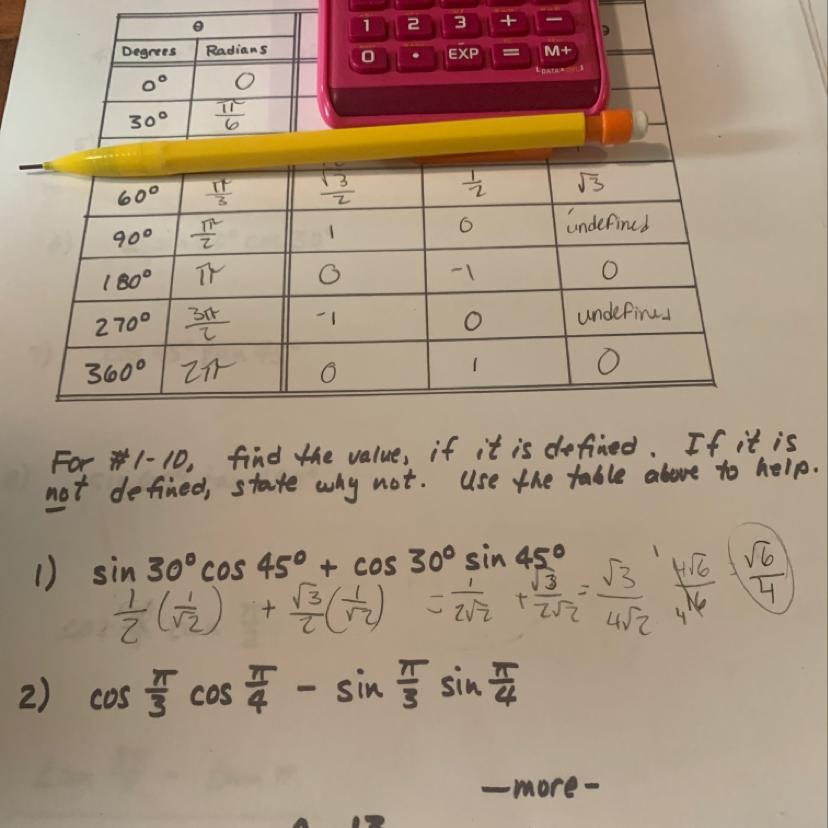 1 2 3 + −
0 • EXP = M+
DATA
θ
Degrees Radians
0° 0
30° π/6
60° π/3 √3/2 1/2 √3
90° π/2 1 0 undefined
180° π 0 -1 0
270° 3π/2 -1 0 undefined
360° 2π 0 1 0
For #1-10, find the value, if it is defined. If it is
not defined, state why not. Use the table above to help.
1) sin 30° cos 45° + cos 30° sin 45°
1/2 (1/√2) + √3/2 (1/√2) = 1/2√2 + √3/2√2 = √3/4√2 4√6/16 = √6/4
2) cos π/3 cos π/4 - sin π/3 sin π/4
-more-